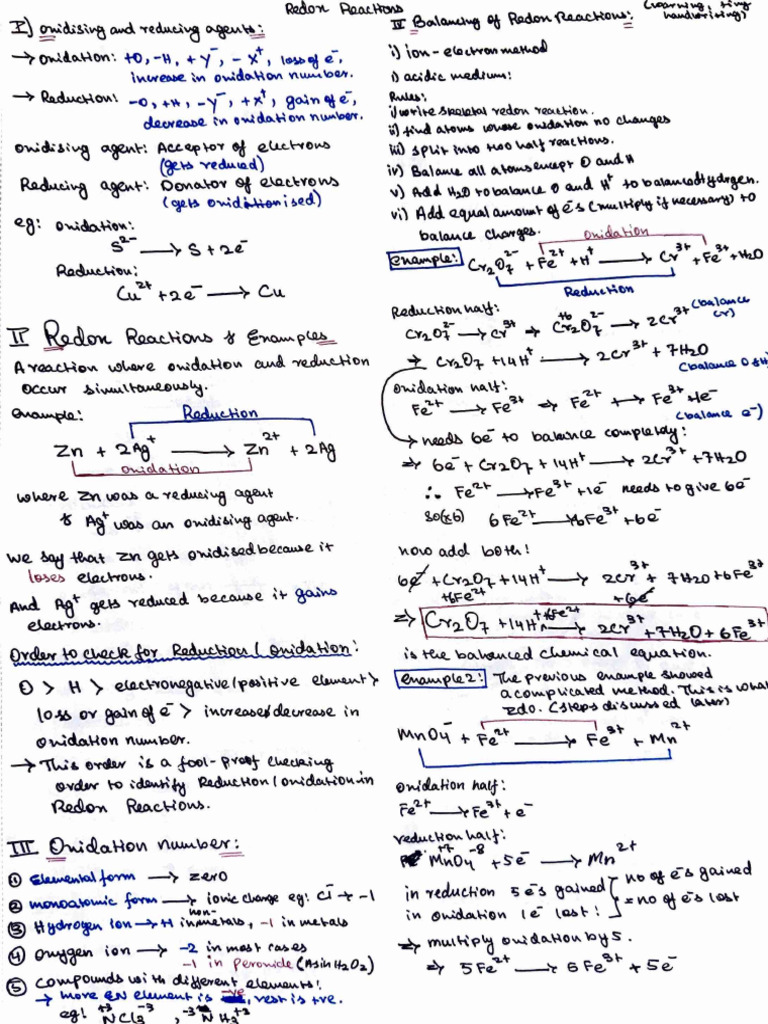 Redox Reactions
I) oxidising and reducing agents:
→ oxidation: +O, -H, +Y⁻, -X⁺, loss of e⁻,
increase in oxidation number.
→ Reduction: -O, +H, -Y⁻, +X⁺, gain of e⁻,
decrease in oxidation number.
oxidising agent: Acceptor of electrons
(gets reduced)
Reducing agent: Donator of electrons
(gets oxiditionised)
eg: oxidation:
S²⁻ → S + 2e⁻
Reduction:
Cu²⁺ + 2e⁻ → Cu
II Redox Reactions & Examples
A reaction where oxidation and reduction
occur simultaneously.
example:
Reduction
Zn + 2Ag⁺ → Zn²⁺ + 2Ag
oxidation
where Zn was a reducing agent
& Ag⁺ was an oxidising agent.
we say that Zn gets oxidised because it
loses electrons.
And Ag⁺ gets reduced because it gains
electrons.
Order to check for Reduction / Oxidation:
O > H > electronegative/positive element >
loss or gain of e⁻ > increase/decrease in
oxidation number.
→ This order is a fool-proof checking
order to identify Reduction/oxidation in
Redox Reactions.
III Oxidation number:
① Elemental form → zero
② monoatomic form → ionic charge eg: Cl⁻ → -1
③ Hydrogen ion → +1 in non-metals, -1 in metals
④ oxygen ion → -2 in most cases
-1 in peroxide (As in H2O2)
⑤ compounds with different elements:
→ more EN element is -ve, rest is +ve.
eg: N⁺³Cl3⁻³, ⁻³NH3⁺³
IV Balancing of Redox Reactions: (warning, tiny
handwriting)
i) ion-electron method
1) acidic medium:
Rules:
i) write skeletal redox reaction.
ii) find atoms whose oxidation no changes
iii) split into two half reactions.
iv) Balance all atoms except O and H
v) Add H2O to balance O and H⁺ to balance Hydrogen.
vi) Add equal amount of e⁻s (multiply if necessary) to
balance charges.
oxidation
example: Cr2O7²⁻ + Fe²⁺ + H⁺ → Cr³⁺ + Fe³⁺ + H2O
Reduction
Reduction half:
Cr2O7²⁻ → Cr³⁺ ⇒ Cr2⁺⁶O7²⁻ → 2Cr³⁺ (balance
Cr)
⇒ Cr2O7 + 14H⁺ → 2Cr³⁺ + 7H2O
(balance O & H)
oxidation half:
Fe²⁺ → Fe³⁺ ⇒ Fe²⁺ → Fe³⁺ + 1e⁻
(balance e⁻)
→ needs 6e⁻ to balance completely:
⇒ 6e⁻ + Cr2O7 + 14H⁺ → 2Cr³⁺ + 7H2O
∴ Fe²⁺ → Fe³⁺ + 1e⁻ needs to give 6e⁻
so(x6) 6Fe²⁺ → 6Fe³⁺ + 6e⁻
now add both:
6e⁻ + Cr2O7 + 14H⁺ → 2Cr³⁺ + 7H2O + 6Fe³⁺
+6Fe²⁺ +6e⁻
⇒ Cr2O7 + 14H⁺ +6Fe²⁺ → 2Cr³⁺ + 7H2O + 6Fe³⁺
is the balanced chemical equation.
example 2: The previous example showed
a complicated method. This is what
I do. (steps discussed later)
MnO4⁻ + Fe²⁺ → Fe³⁺ + Mn²⁺
oxidation half:
Fe²⁺ → Fe³⁺ + e⁻
reduction half:
Mn⁺⁷O4⁻⁸ + 5e⁻ → Mn²⁺
in reduction 5 e⁻s gained { no of e⁻s gained
in oxidation 1e⁻ lost: } = no of e⁻s lost
⇒ multiply oxidation by 5.
⇒ 5Fe²⁺ → 5Fe³⁺ + 5e⁻